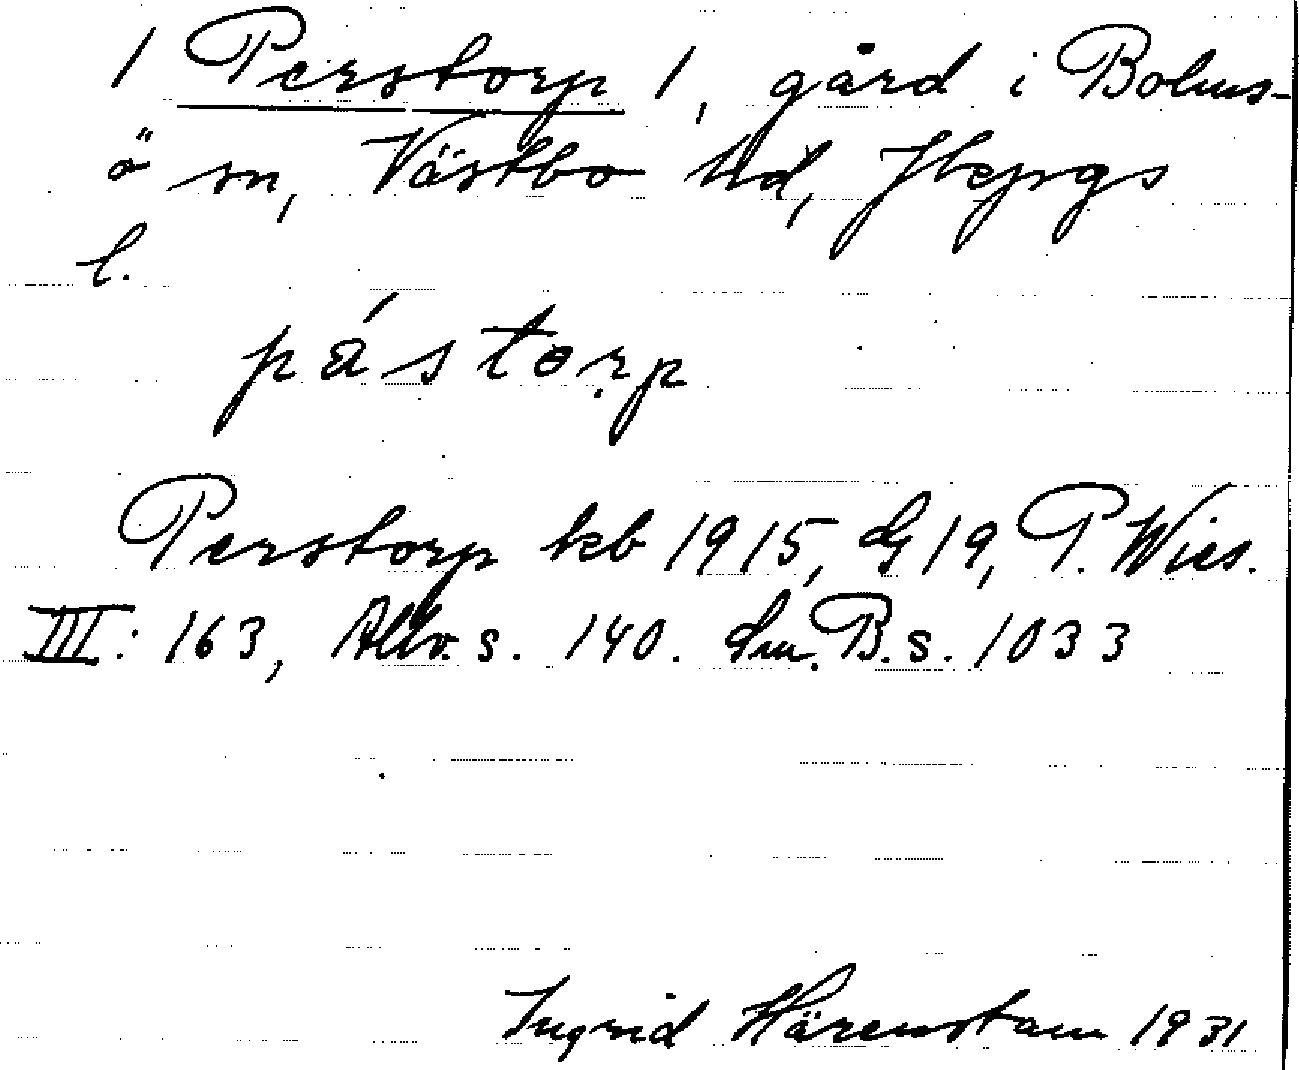 / Perstorp /, gård i Bolms-
ö sn, Västbo hd, Jkpgs
l.
pástorp
Perstorp kb 1915, G 19, P. Wies.
III: 163, Allv. s. 140. Sm. B. s. 1033
Ingrid Härenstam 1931